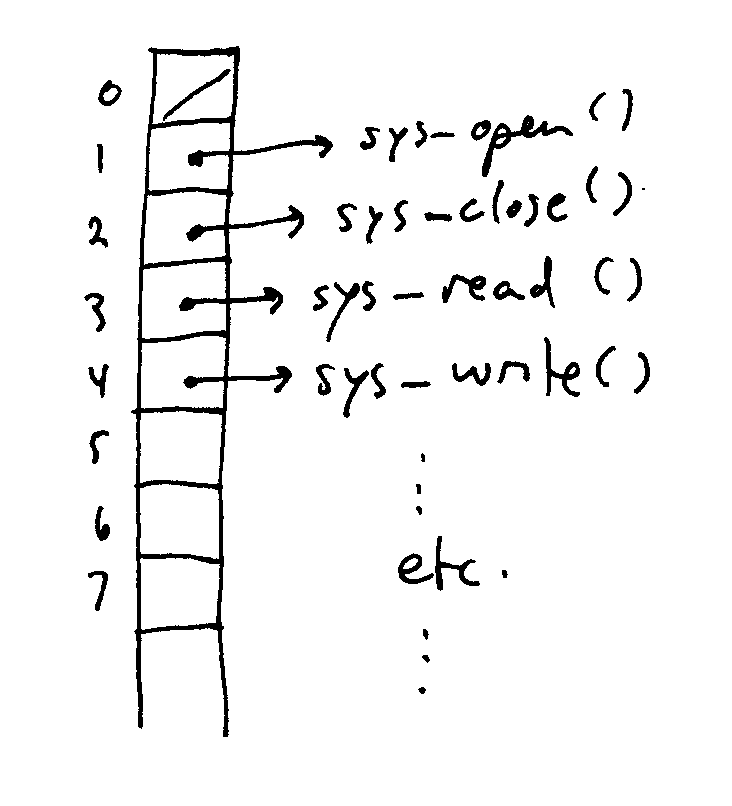 0
1 sys_open()
2 sys_close()
3 sys_read()
4 sys_write()
5
6
etc.
7